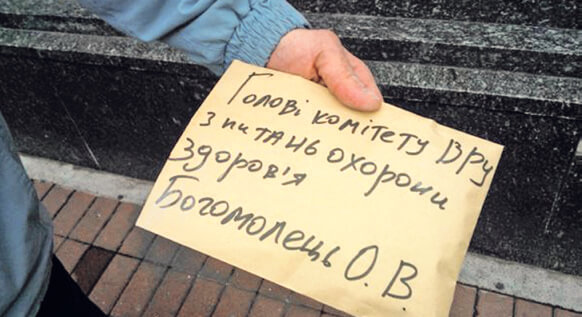 Голові комітету ВРУ
з питань охорони
здоров'я
Богомолець О. В.